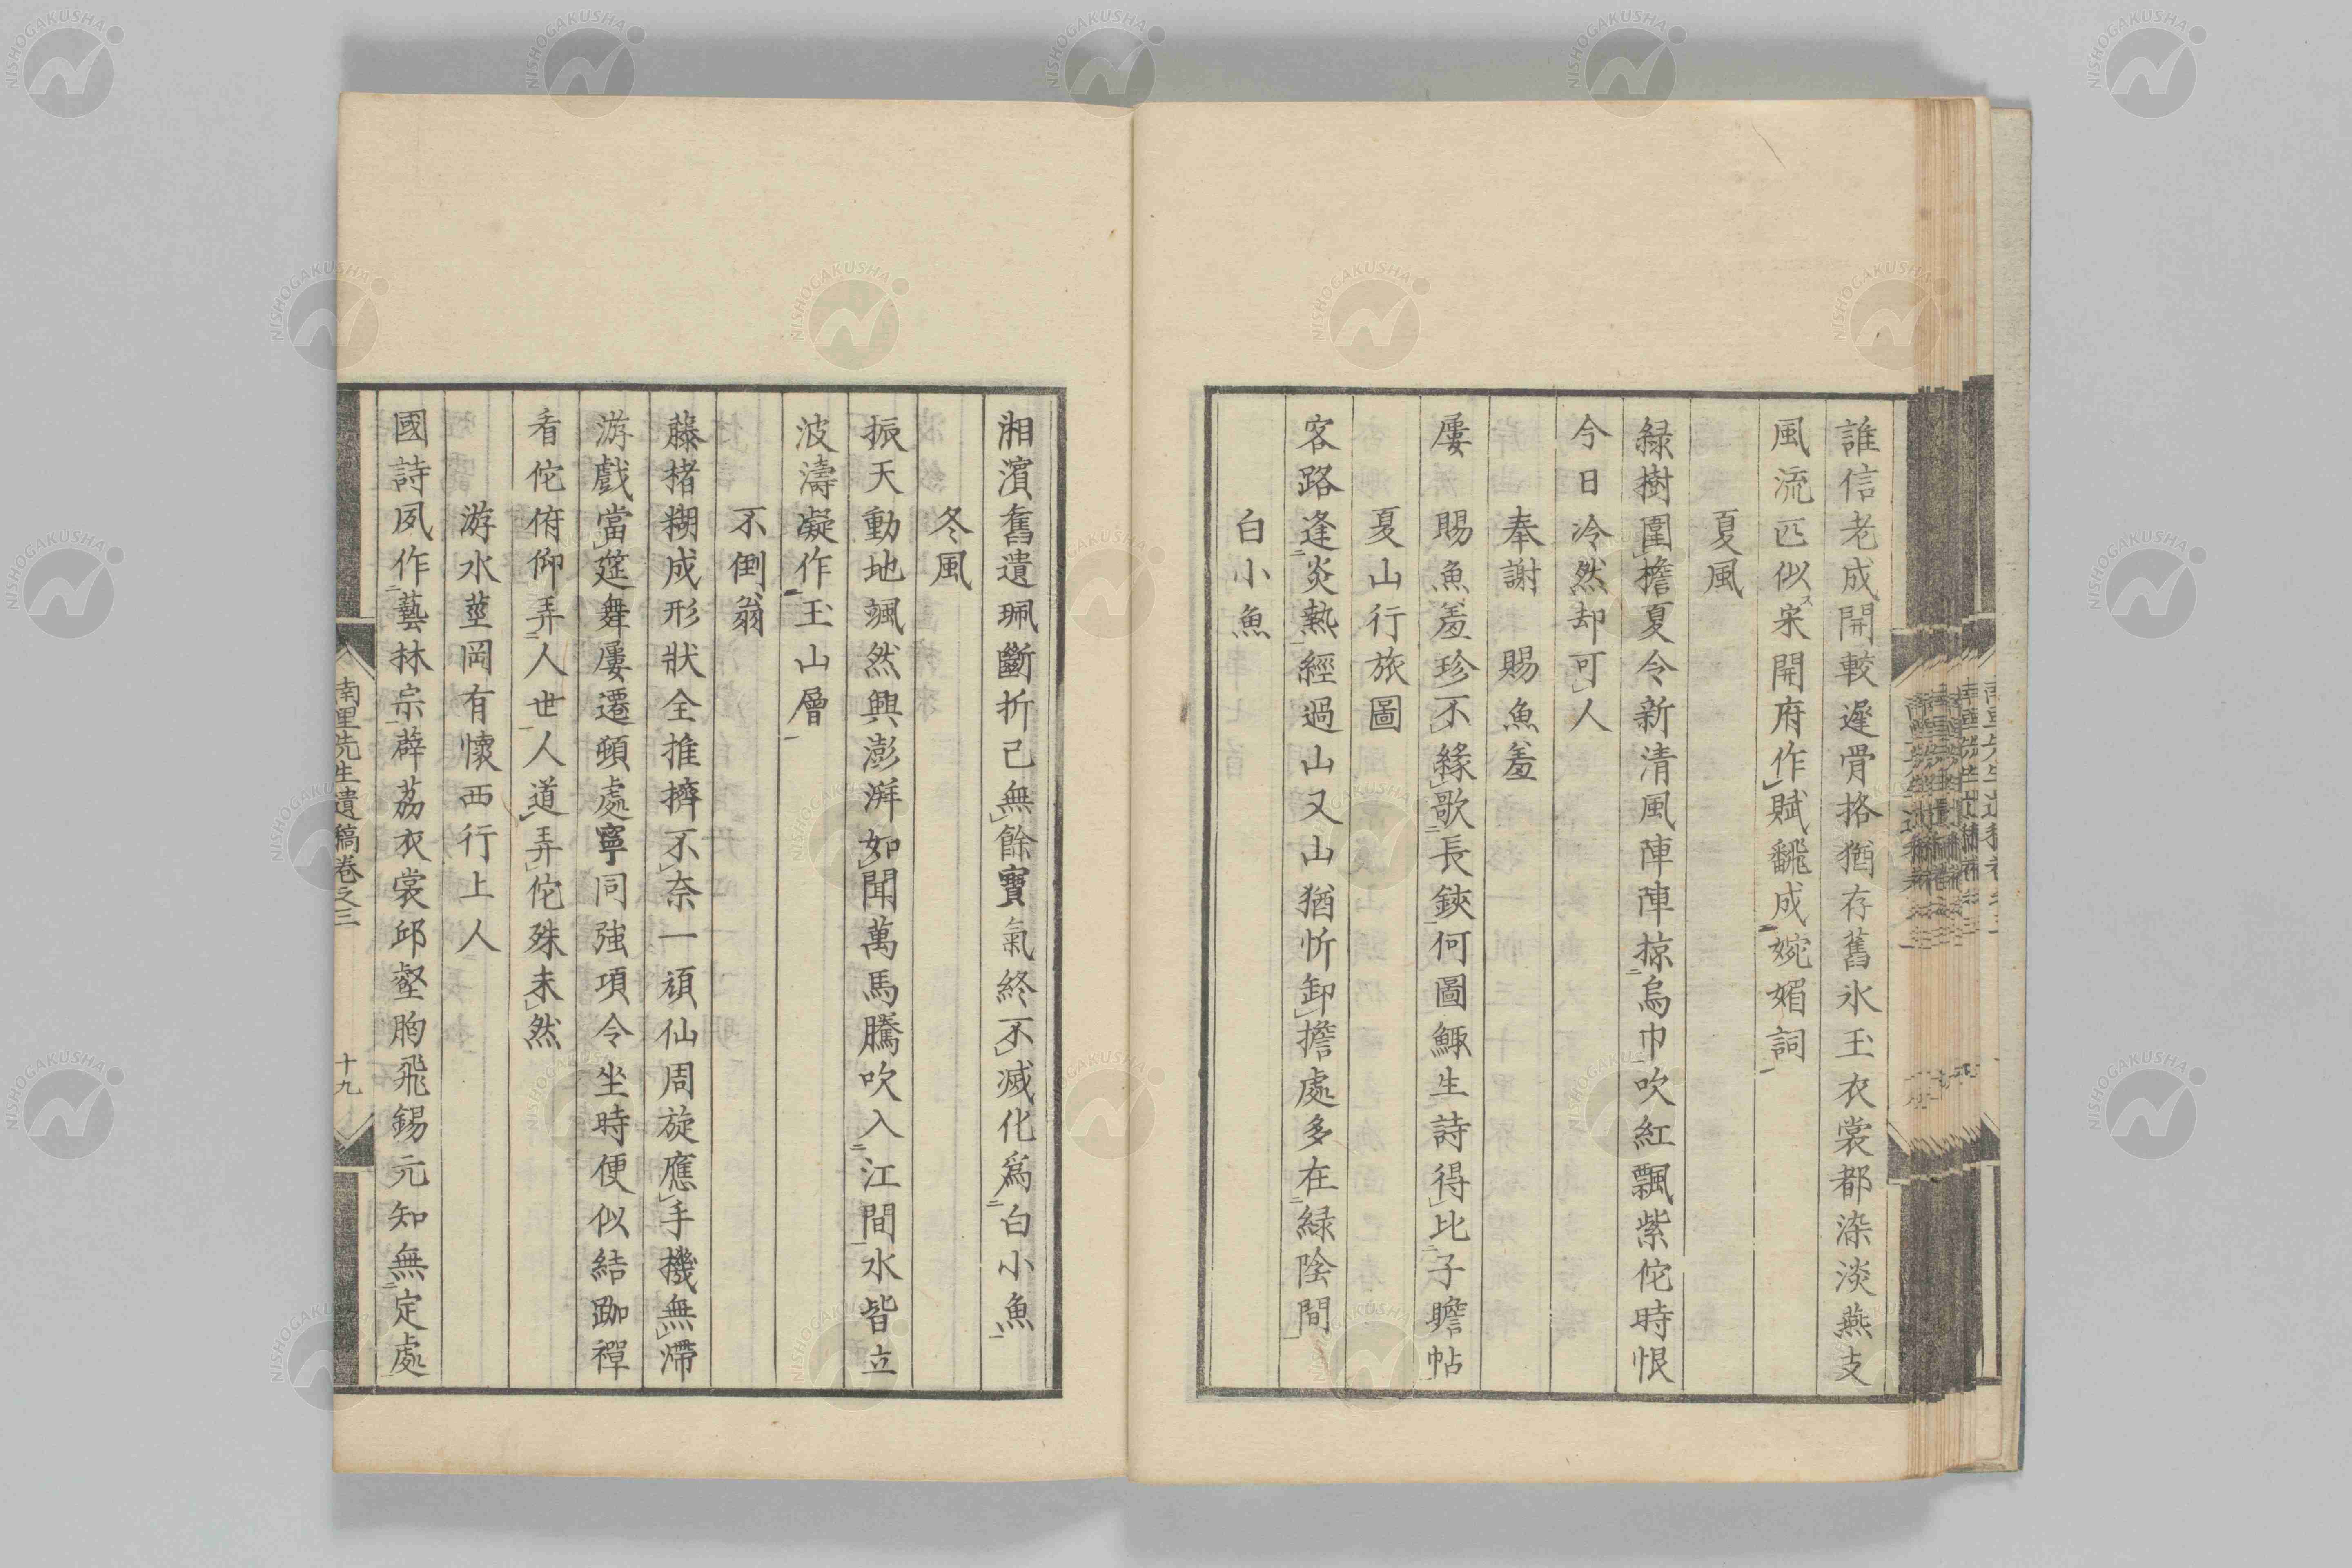 誰信老成開較遲骨格猶存舊氷玉衣裳都染淡燕支
風流匹似宋開府作賦飜成婉媚詞
夏風
緑樹圍檐夏令新清風陣陣掠烏巾吹紅飄紫佗時恨
今日冷然却可人
奉謝　賜魚羞
屢　賜魚羞珍不緣歌長鋏何圖鯫生詩得比子瞻帖
夏山行旅圖
客路逢炎熱經過山又山猶忻卸擔處多在緑陰間
白小魚
湘濱舊遺珮斷折已無餘寳氣終不滅化爲白小魚
冬風
振天動地颯然興澎湃如聞萬馬騰吹入江間水皆立
波濤凝作玉山層
不倒翁
藤楮糊成形狀全推擠不奈一頑仙周旋應手機無滯
游戲當筵舞屢遷頓處寧同強項令坐時便似結跏禪
看佗俯仰弄人世人道弄佗殊未然
游水莖岡有懷西行上人
國詩夙作藝林宗薜荔衣裳邱壑胸飛錫元知無定處
南里先生遺稿卷之三
十九
NISHOGAKUSHA